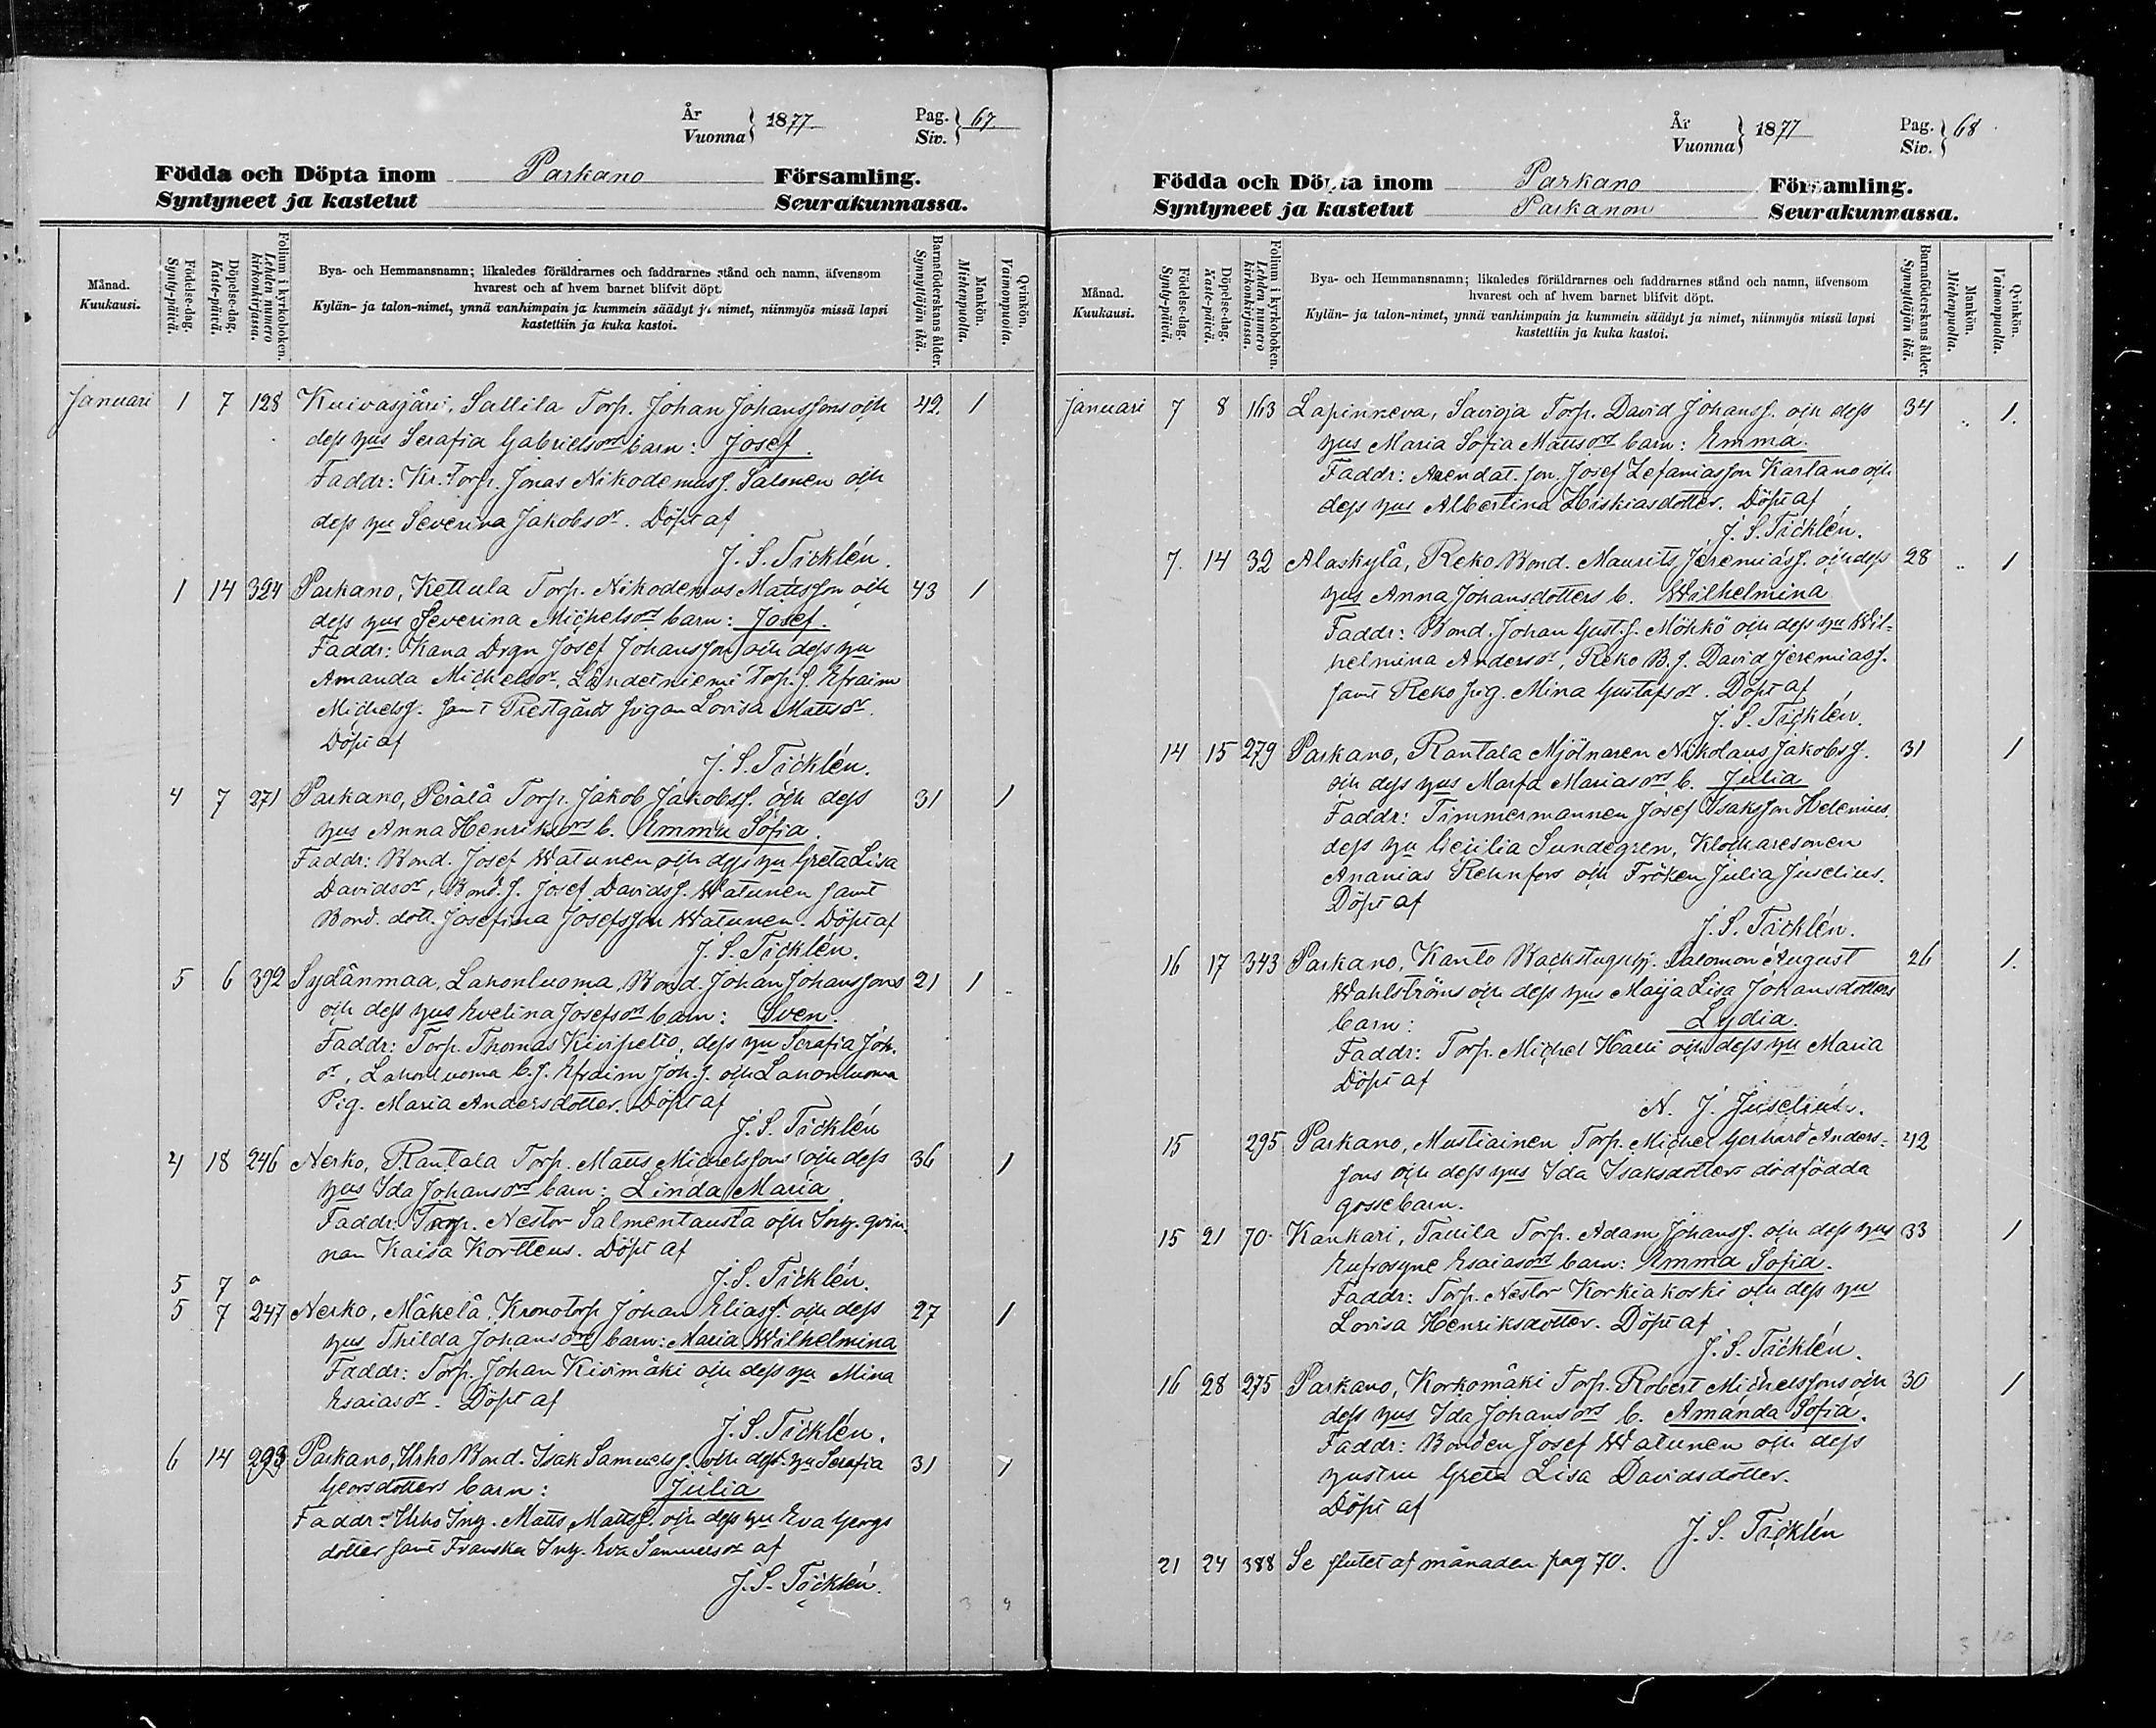 År
Vuonna } 1877 Pag.
Siv. } 67
Födda och Döpta inom Parkano Församling.
Syntyneet ja kastetut Seurakunnassa.
Månad.
Kuukausi.
Födelse-dag.
Synty-päivä.
Döpelse-dag.
Kaste-päivä.
Folium i kyrkoboken.
Lehden numero
kirkonkirjassa.
Bya- och Hemmansnamn; likaledes föräldrarnes och faddrarnes stånd och namn, äfvensom
hvarest och af hvem barnet blifvit döpt.
Kylän- ja talon-nimet, ynnä vanhimpain ja kummein säädyt ja nimet, niinmyös missä lapsi
kastettiin ja kuka kastoi.
Barnaföderskans ålder.
Synnyttäjän ikä.
Mankön.
Miehenpuolia.
Qvinkön.
Vaimonpuolia.
Januari 1 7 128 Kuivasjärvi, Sallila Torp. Johan Johanssons och 42 1
dess hus Serafia Gabrielsdrs barn: Josef.
Faddr: Kr. Torp. Jonas Nikodemuss. Salonen och
dess hu Severina Jakobsdr. Döpt af
J. S. Ticklén.
1 14 324 Parkano, Kettula Torp. Nikodemus Mattsson och 43 1
dess hus Severina Michelsdrs barn: Josef.
Faddr: Kana Drgn Josef Johansson och dess hu
Amanda Michelsdr, Länderniemi Torp. s. Efraim
Michelss. samt Prestgårds Pigan Lovisa Mattsdr.
Döpt af
J. S. Ticklén.
4 7 271 Parkano, Perälä Torp. Jakob Jakobss. och dess 31 1
hus Anna Henriksdrs b. Emma Sofia.
Faddr: Bond. Josef Watunen och dess hu Greta Lisa
Davidsdr, Bond. s. Josef Davidss. Watunen samt
Bond. dott. Josefina Josefsson Watunen. Döpt af
J. S. Ticklén.
5 6 392 Sydänmaa, Lahonluoma, Bond. Johan Johanssons 21 1
och dess hus Evelina Josefsdrs barn: Sven.
Faddr: Torp. Thomas Kivipelto, dess hu Serafia Joh.
dr, Lahonluoma b. s. Efraim Joh. s. och Lahonluoma
Pig. Maria Andersdotter. Döpt af
J. S. Ticklén
4 18 246 Nerko, Rantala Torp. Matts Michelssons och dess 36 1
hus Ida Johansdrs barn: Linda Maria.
Faddr: Torp. Nestor Salmentausta och Inh. qvin-
nan Kaisa Korttens. Döpt af
J. S. Ticklén.
5 7
5 7 247 Nerko, Mäkelä, Kronotorp Johan Eliass. och dess 27 1
hus Thilda Johansdrs barn: Maria Wilhelmina
Faddr: Torp. Johan Kivimäki och dess hu Mina
Esaiasdr. Döpt af
J. S. Ticklén.
6 14 293 Parkano, Uhko Bond. Isak Samuelss. och dess hu Serafia 31 1
Georsdotters barn: Julia
Faddr: Uhko Inh. Matts Mattss. och dess hu Eva Georgs
dotter samt Franska Inh. Eva Samuelsdr af
J. S. Ticklén.
3 4
År
Vuonna } 1877 Pag.
Siv. } 68
Födda och Döpta inom Parkano Församling.
Syntyneet ja kastetut Parkanon Seurakunnassa.
Månad.
Kuukausi.
Födelse-dag.
Synty-päivä.
Döpelse-dag.
Kaste-päivä.
Folium i kyrkoboken.
Lehden numero
kirkonkirjassa.
Bya- och Hemmansnamn; likaledes föräldrarnes och faddrarnes stånd och namn, äfvensom
hvarest och af hvem barnet blifvit döpt.
Kylän- ja talon-nimet, ynnä vanhimpain ja kummein säädyt ja nimet, niinmyös missä lapsi
kastettiin ja kuka kastoi.
Barnaföderskans ålder.
Synnyttäjän ikä.
Mankön.
Miehenpuolia.
Qvinkön.
Vaimonpuolia.
Januari 7 8 163 Lapinneva, Savioja Torp. David Johanss. och dess 34 1.
hus Maria Sofia Mattsdrs barn: Emma.
Faddr: Arendat. son Josef Zefaniasson Kartano och
dess hus Albertina Hiskiasdotter. Döpt af
J. S. Ticklén.
7. 14 32 Alaskylä, Reko Bond. Maurits Jeremiass. och dess 28 1
hus Anna Johansdotters b. Wilhelmina
Faddr: Bond. Johan Gust. s. Möhkö och dess hu Wil-
helmina Andersdr, Reko B. s. David Jeremiass.
samt Reko Pig. Mina Gustafsdr. Döpt af
J. S. Ticklén.
14 15 279 Parkano, Rantala Mjölnaren Nikolaus Jakobss. 31 1
och dess hus Marfa Mariasdrs b. Julia
Faddr: Timmermannen Josef Isaksson Helenius,
dess hu Cecilia Sundegren, Klockaresonen
Ananias Rehnfors och Fröken Julia Juselius.
Döpt af
J. S. Ticklén.
16 17 343 Parkano, Kanto Backstugsh. Salomon August 26 1.
Wahlströms och dess hus Maija Lisa Johansdotters
barn: Lydia.
Faddr: Torp. Michel Halli och dess hu Maria
Döpt af
N. J. Juselius.
15 295 Parkano, Mustiainen Torp. Michel Gerhard Anders- 42
sons och dess hus Ida Isaksdotters dödfödda
gossebarn.
15 21 70 Kankari, Tallila Torp. Adam Johanss. och dess hus 33 1
Eufrosyne Esaiasdrs barn: Emma Sofia.
Faddr: Torp. Nestor Korkiakoski och dess hu
Lovisa Henriksdotter. Döpt af
J. S. Ticklén.
16 28 275 Parkano, Korkomäki Torp. Robert Michelssons och 30 1
dess hus Ida Johansdrs b. Amanda Sofia.
Faddr: Bonden Josef Watunen och dess
hustru Greta Lisa Davidsdotter.
Döpt af
J. S. Ticklén
21 24 388 Se slutet af månaden pag 70.
3 10